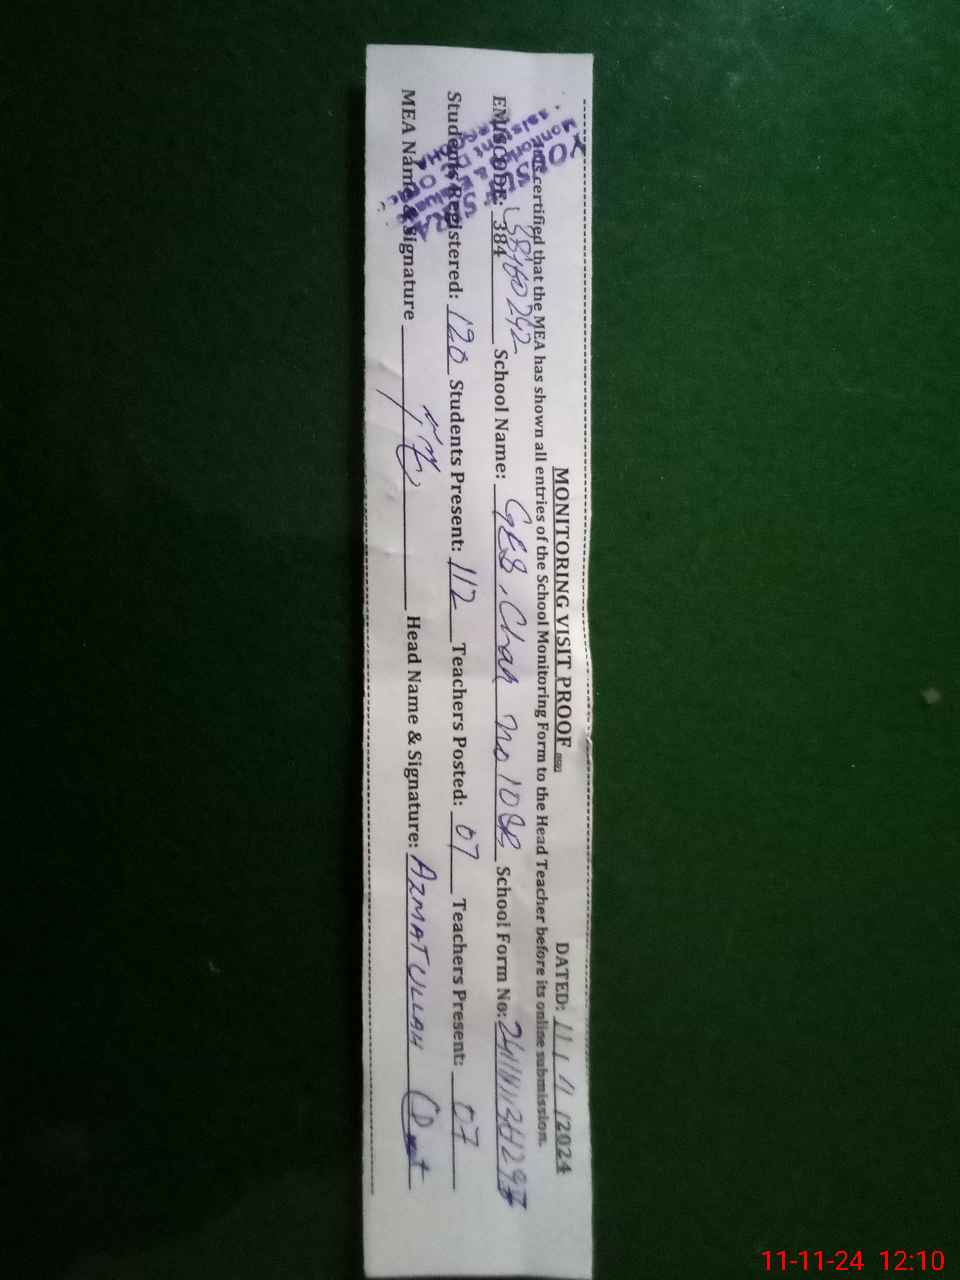 MONITORING VISIT PROOF DATED: 11 / 11 /2024
certified that the MEA has shown all entries of the School Monitoring Form to the Head Teacher before its online submission.
EMISCODE: 384 38460292 School Name: GES, Chak no 10 School Form No:
Students Registered: 120 Students Present: 112 Teachers Posted: 07 Teachers Present: 07
MEA Name & Signature Head Name & Signature: AZMATULLAH
11-11-24 12:10